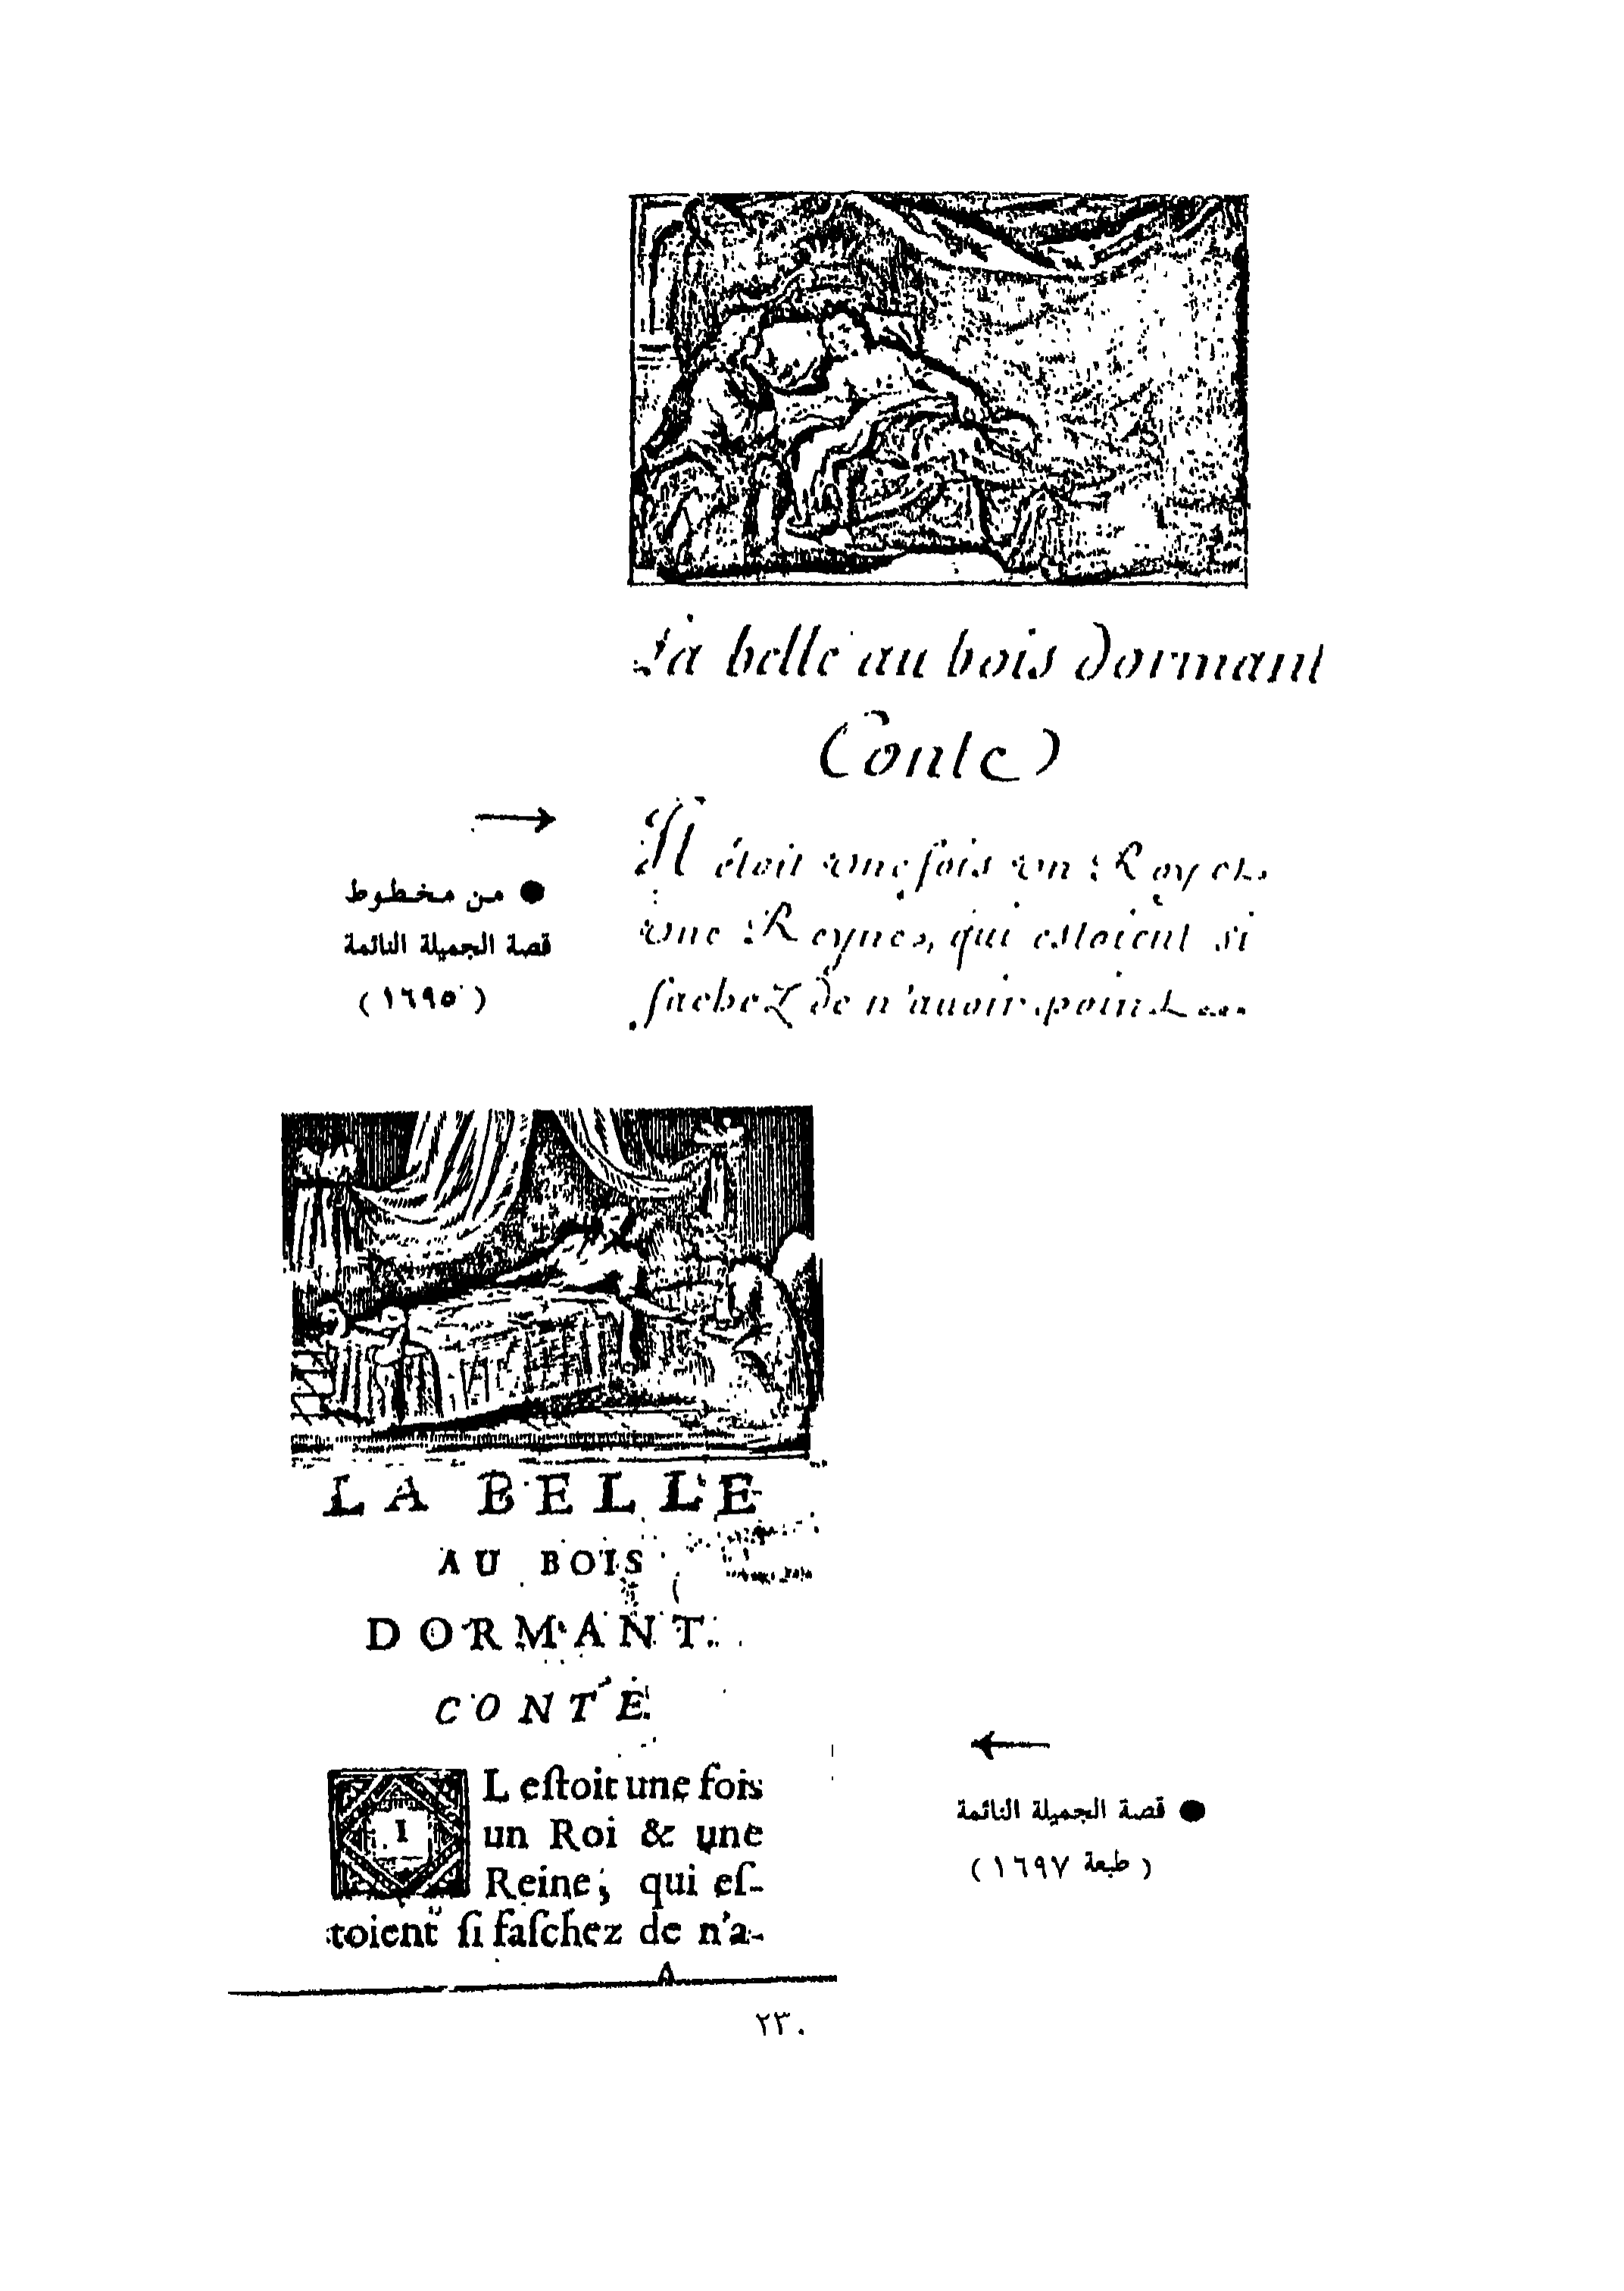 La belle au bois dormant
Conte
Il étoit une fois un Roy et
une Reyne, qui estoient si
fachez de n'auoir point...
● من مخطوط
قصة الجميلة النائمة
(١٦٩٥)
LA BELLE
AU BOIS
DORMANT.
CONTE.
IL eſtoit une fois
un Roi & une
Reine, qui eſ-
toient ſi faſchez de n'a-
A
● قصة الجميلة النائمة
(طبعة ١٦٩٧)
٢٣٠